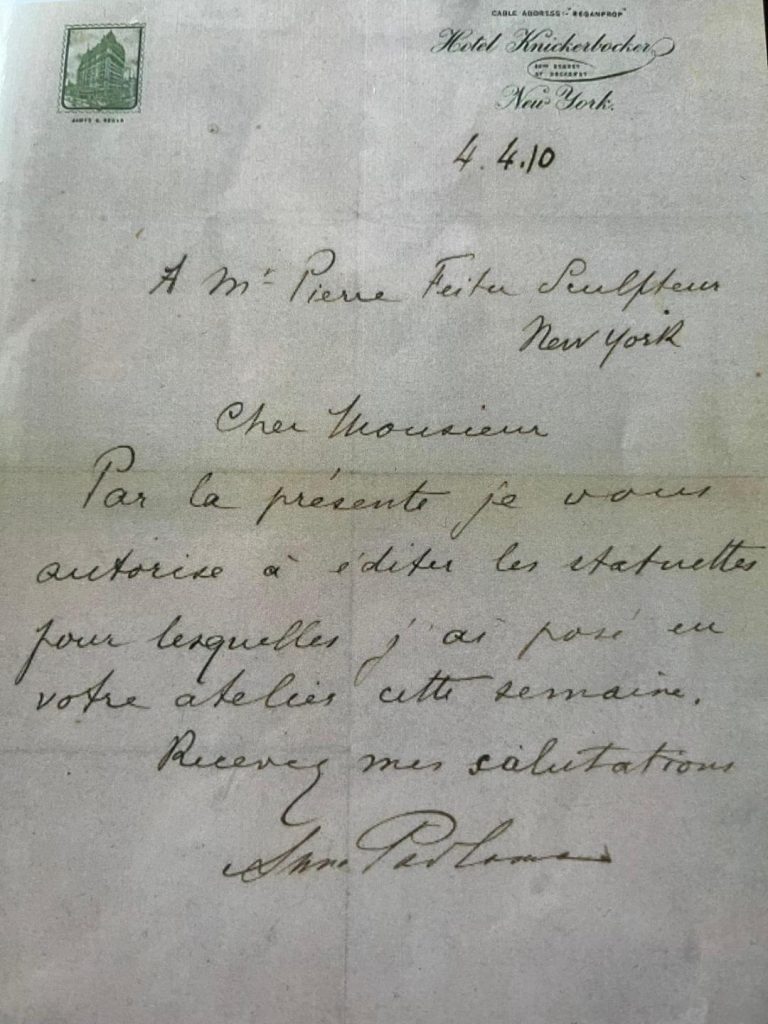 CABLE ADDRESS:- "REGANPROP"
Hotel Knickerbocker
42ND STREET
AT BROADWAY
New York.
JAMES B. REGAN
4.4.10
A Mr Pierre Feitu Sculpteur
New York
Cher Monsieur
Par la présente je vous
autorise à éditer les statuettes
pour lesquelles j'ai posé en
votre atelier cette semaine.
Recevez mes salutations
Anna Pavlowa